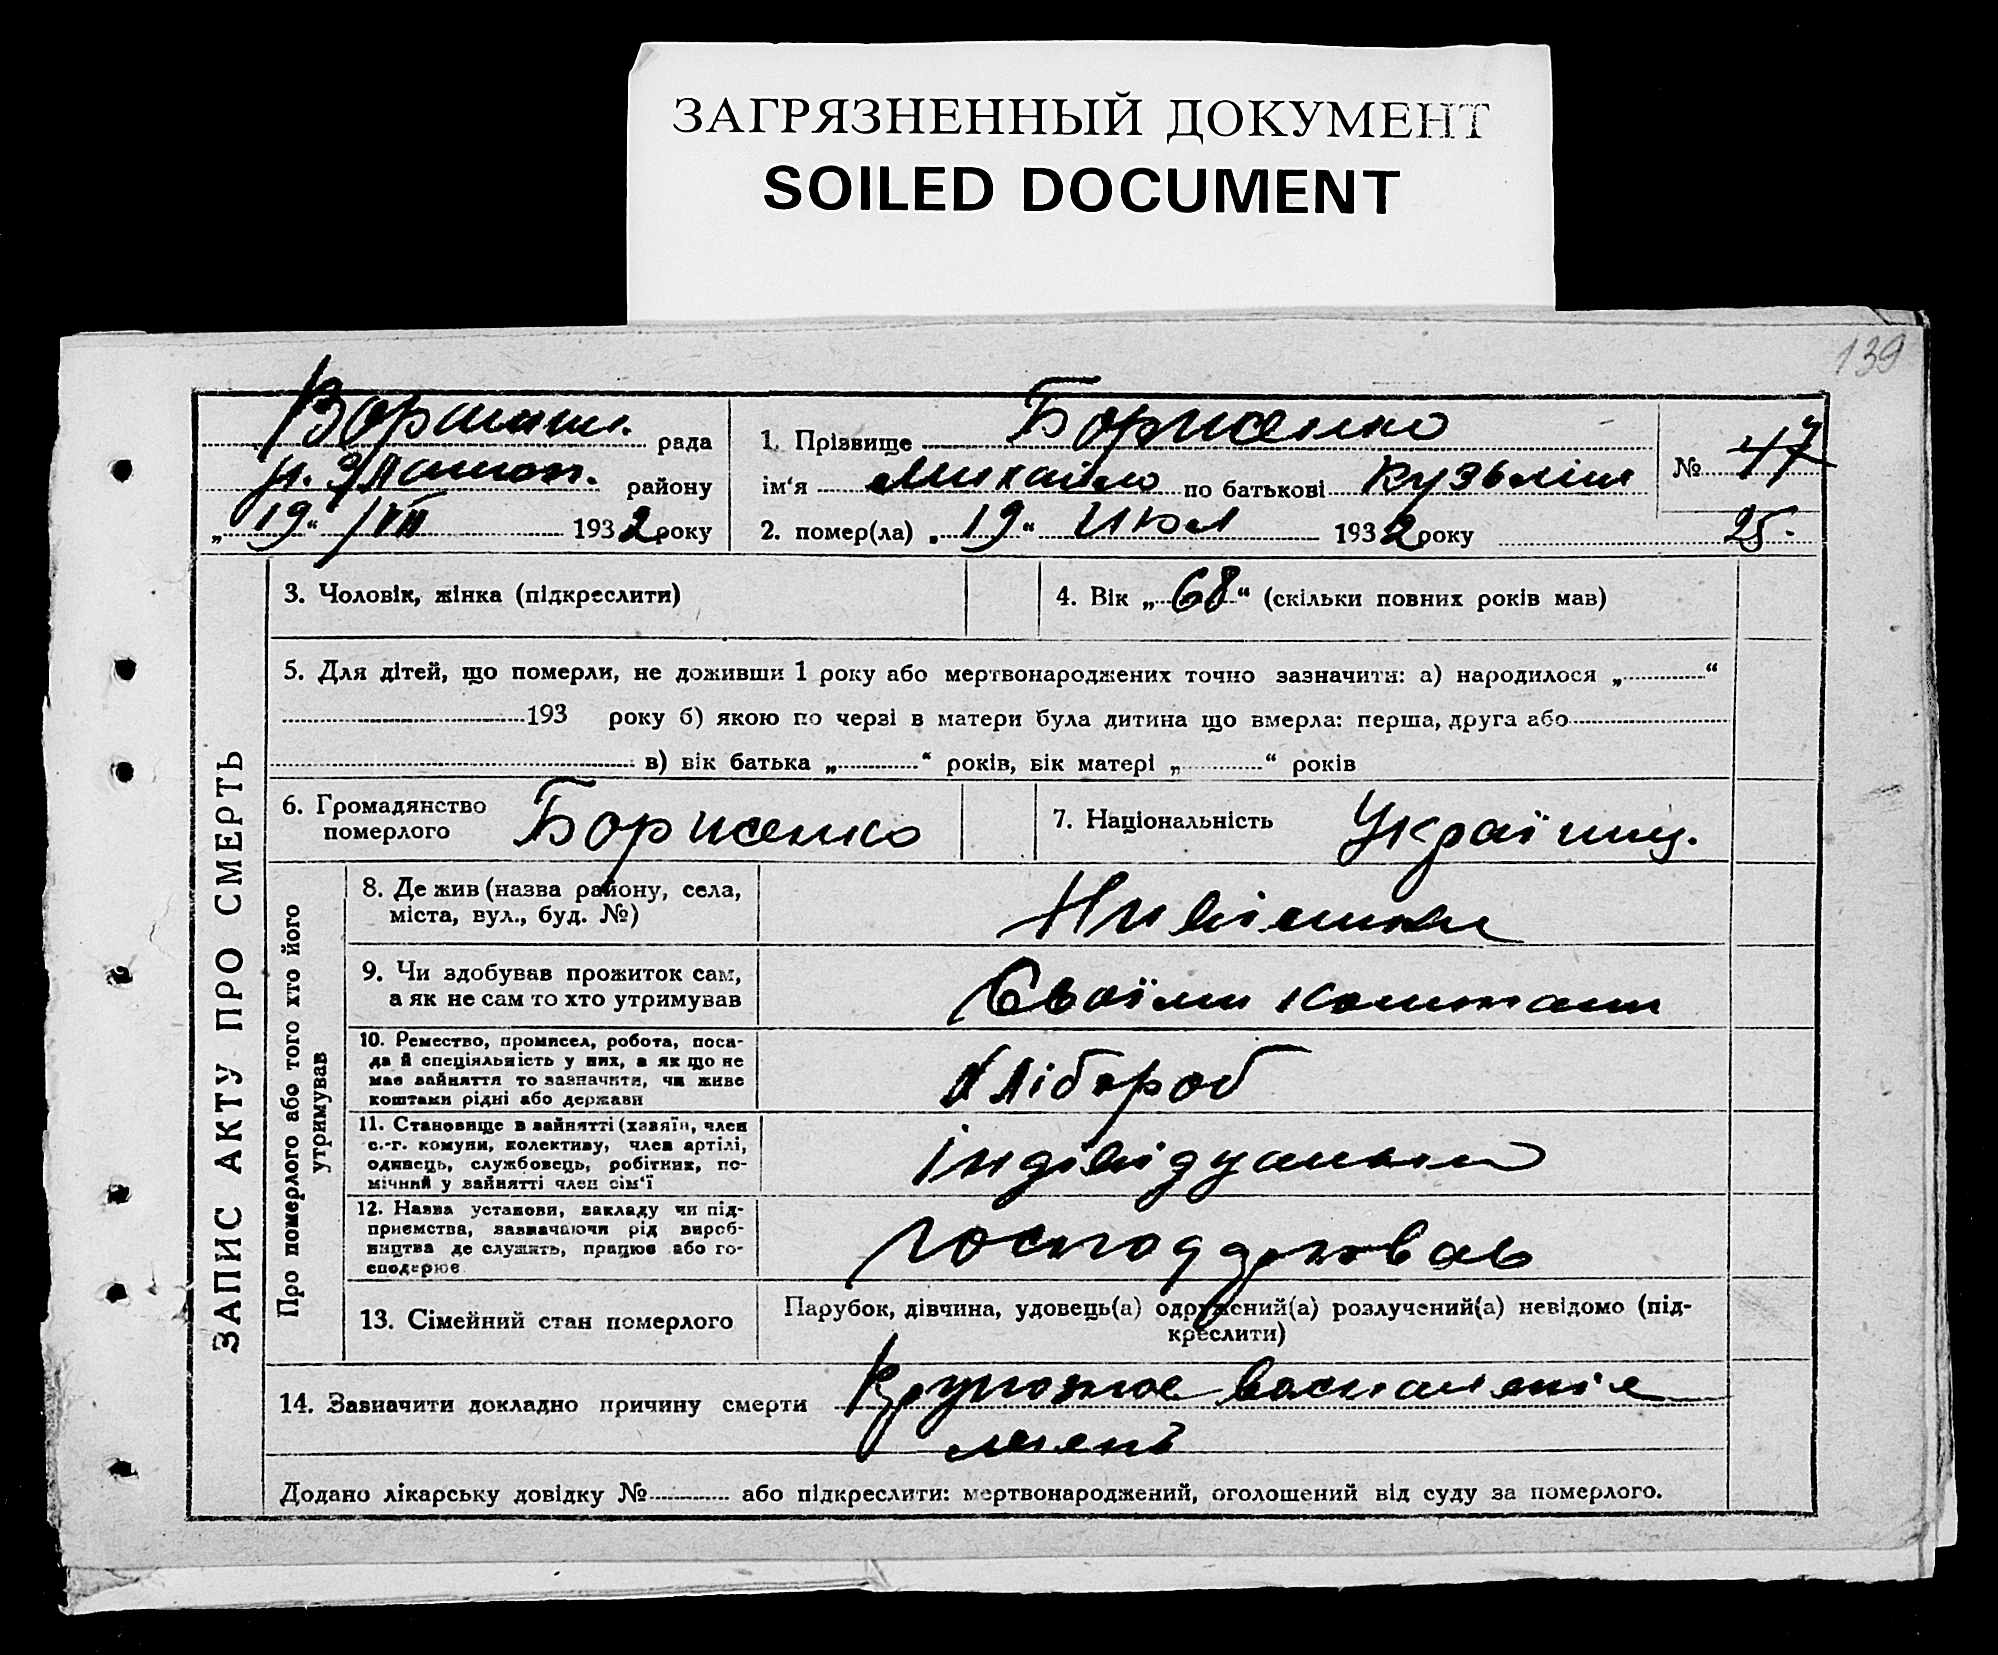 ЗАГРЯЗНЕННЫЙ ДОКУМЕНТ
SOILED DOCUMENT
139
рада
району
„ 19 “ VII 1932 року
1. Прізвище Борисенко
ім‘я Михайло по батькові Кузьміч
2. помер(ла) „ 19 “ Июл 1932 року
№ 47
25.
ЗАПИС АКТУ ПРО СМЕРТЬ
3. Чоловік, жінка (підкреслити)
4. Вік „ 68 “ (скільки повних років мав)
5. Для дітей, що померли, не доживши 1 року або мертвонароджених точно зазначити: а) народилося „ “
193 року б) якою по черзі в матери була дитина що вмерла: перша, друга або
в) вік батька „ “ років, вік матері „ “ років
6. Громадянство
померлого
Борисенко
7. Національність Україниц.
Про померлого або того хто його
утримував
8. Де жив (назва району, села,
міста, вул., буд. №)
9. Чи здобував прожиток сам,
а як не сам то хто утримував
Своїми коштами
10. Ремество, промисел, робота, поса-
да й спеціяльність у них, а як що не
має зайняття то зазначити, чи живе
коштами рідні або держави
Хлібороб
11. Становище в зайнятті (хазяїн, член
с.-г. комуни, колективу, член артілі,
одинець, службовець, робітник, по-
мічний у зайнятті член сім‘ї
12. Назва установи, закладу чи під-
приємства, зазначаючи рід вироб-
ництва де служить, працює або го-
сподарює
13. Сімейний стан померлого
Парубок, дівчина, удовець(а) одружений(а) розлучений(а) невідомо (під-
креслити)
14. Зазначити докладно причину смерти Крупозное воспаленіе
Додано лікарську довідку № або підкреслити: мертвонароджений, оголошений від суду за померлого.